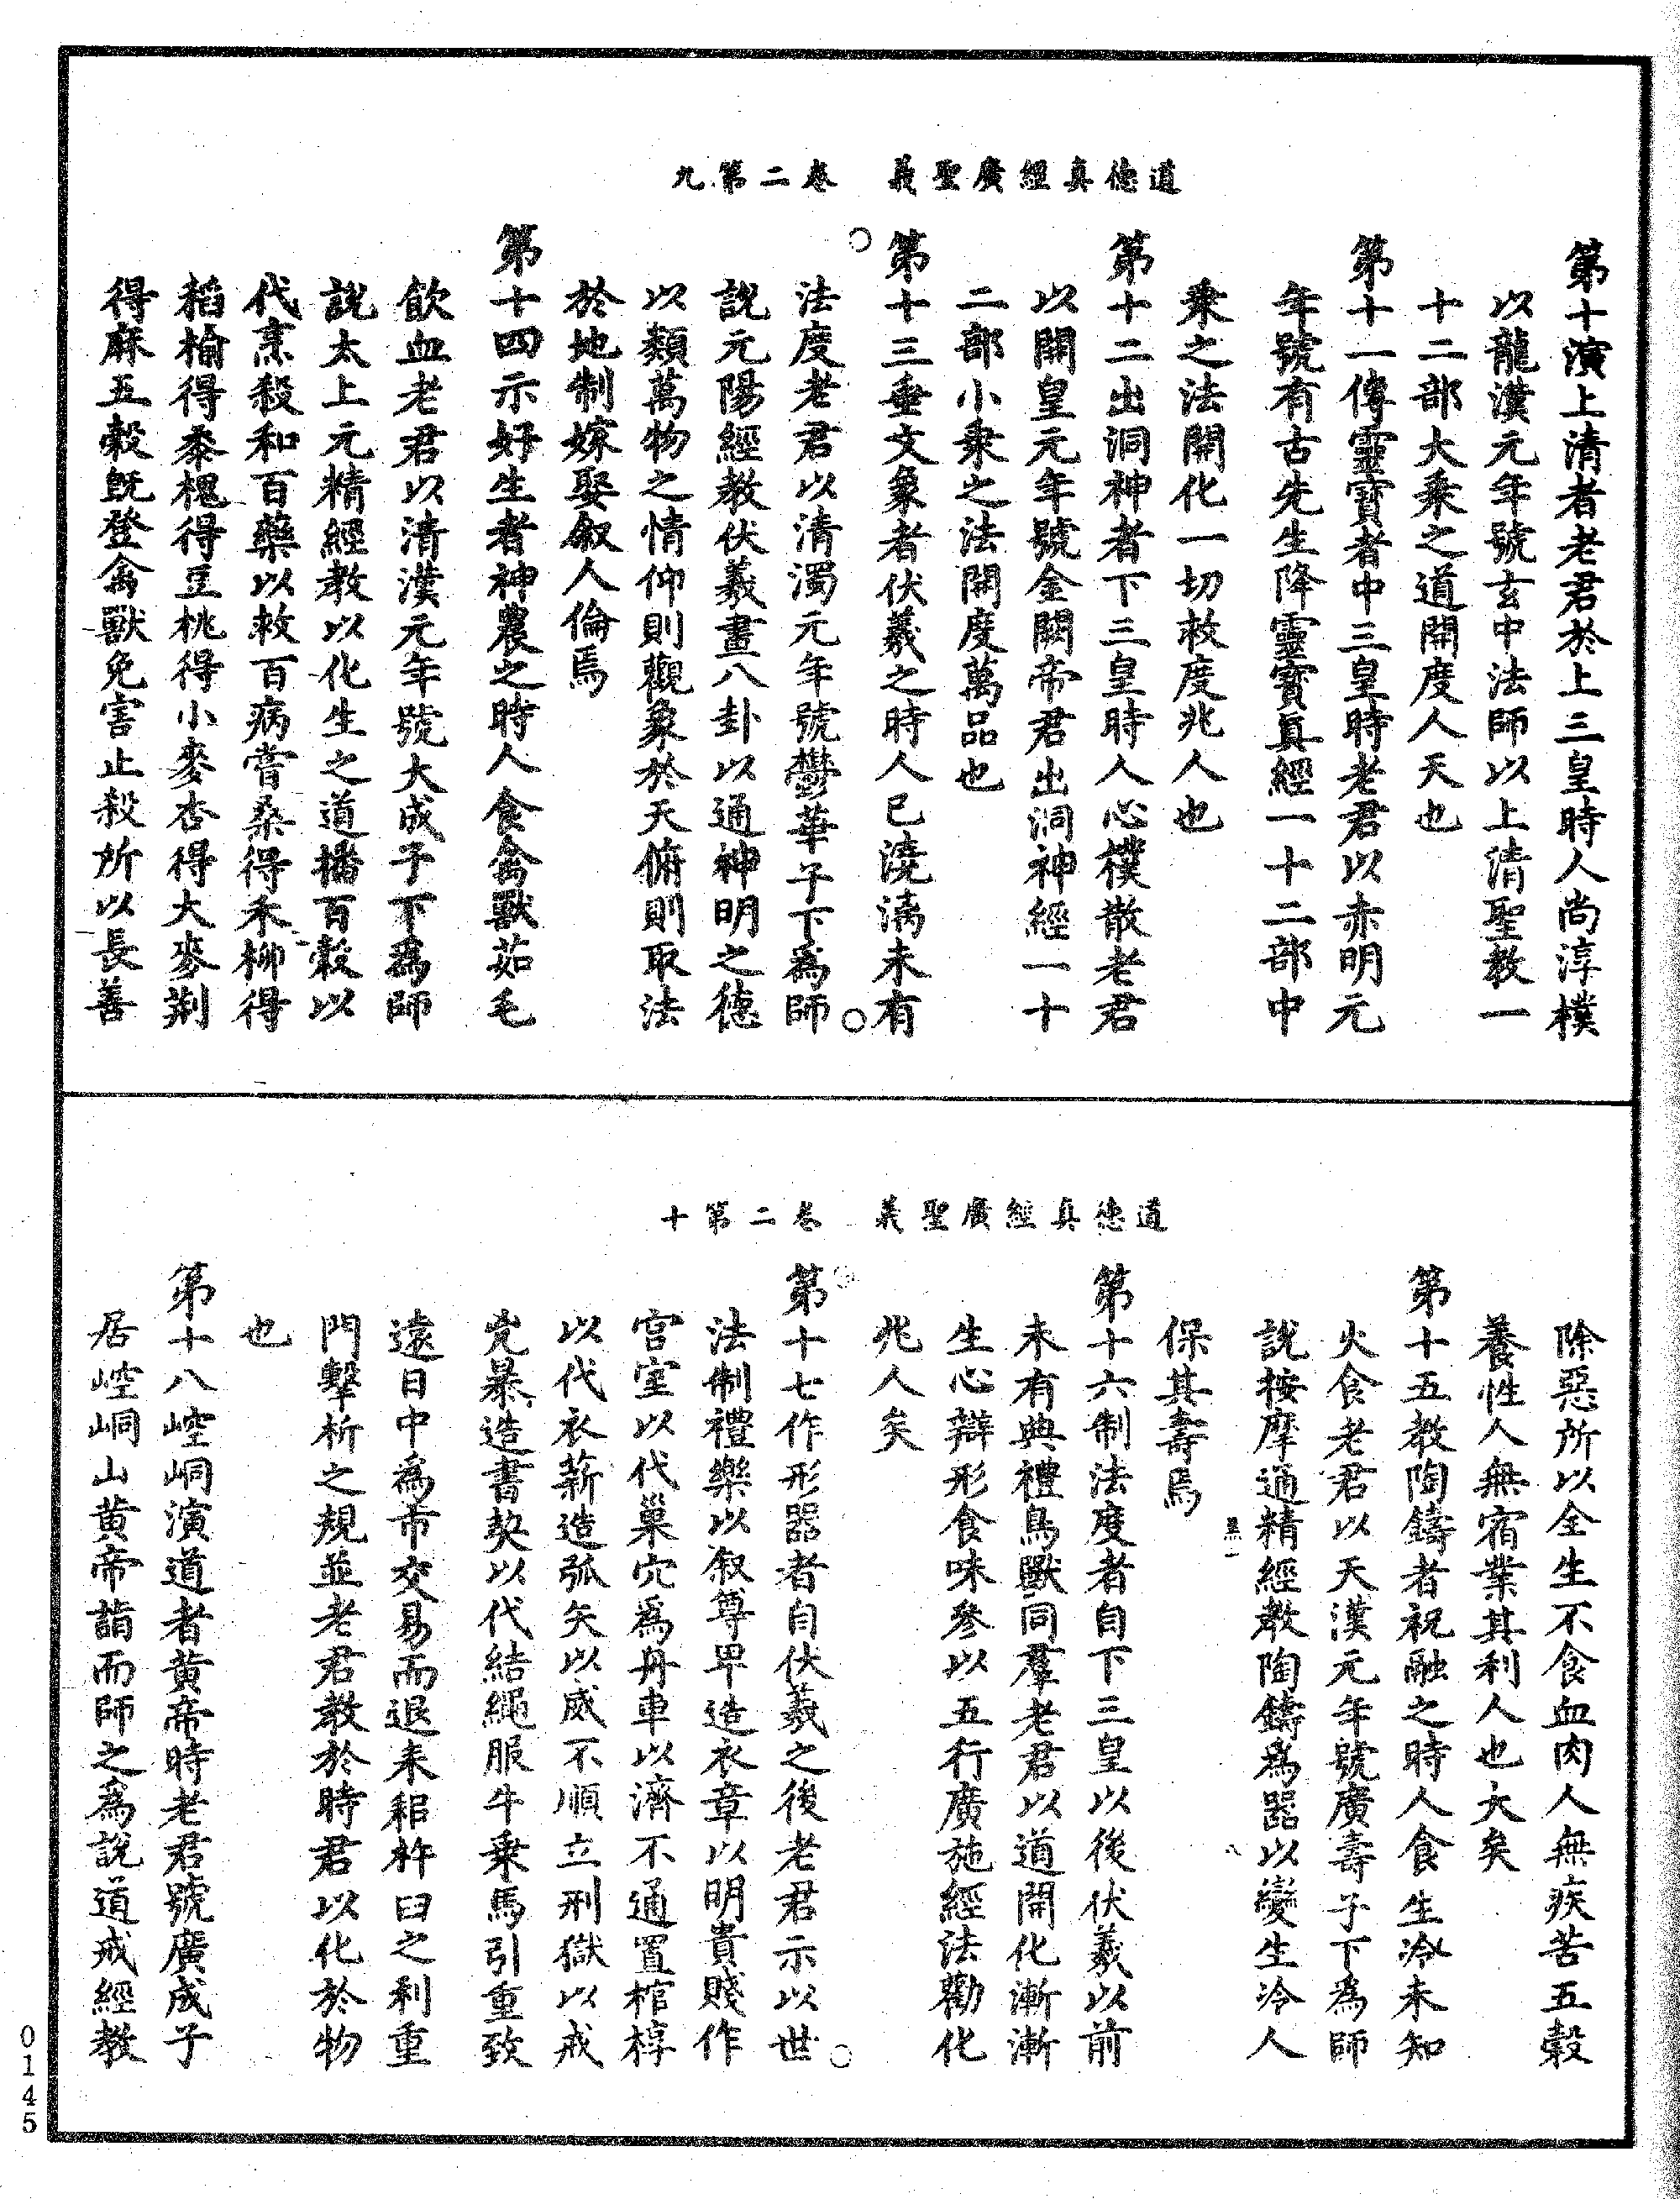 道德真經廣聖義　卷二第九
第十演上清者老君於上三皇時人尚淳樸
以龍漢元年號玄中法師以上清聖教一
十二部大乘之道開度人天也
第十一傳靈寶者中三皇時老君以赤明元
年號有古先生降靈寶真經一十二部中
乘之法開化一切救度兆人也
第十二出洞神者下三皇時人心樸散老君
以開皇元年號金闕帝君出洞神經一十
二部小乘之法開度萬品也
第十三垂文象者伏羲之時人已澆漓未有
法度老君以清濁元年號鬱華子下為師
說元陽經教伏羲畫八卦以通神明之德
以類萬物之情仰則觀象於天俯則取法
於地制嫁娶敘人倫焉
第十四示好生者神農之時人食禽獸茹毛
飲血老君以清漢元年號大成子下為師
說太上元精經教以化生之道播百穀以
代烹殺和百藥以救百病嘗桑得禾柳得
稻榆得黍槐得豆桃得小麥杏得大麥荊
得麻五穀既登禽獸免害止殺所以長善
道德真經廣聖義　卷二第十
除惡所以全生不食血肉人無疾苦五穀
養性人無宿業其利人也大矣
第十五教陶鑄者祝融之時人食生冷未知
火食老君以天漢元年號廣壽子下為師
說按摩通精經教陶鑄為器以變生冷人
保其壽焉
第十六制法度者自下三皇以後伏羲以前
未有典禮鳥獸同羣老君以道開化漸漸
生心辯形食味參以五行廣施經法勸化
兆人矣
第十七作形器者自伏羲之後老君示以世
法制禮樂以叙尊卑造衣章以明貴賤作
宮室以代巢穴為舟車以濟不通置棺椁
以代衣薪造弧矢以威不順立刑獄以戒
兇暴造書契以代結繩服牛乘馬引重致
遠日中為市交易而退耒耜杵臼之利重
門擊柝之規並老君教於時君以化於物
也
第十八崆峒演道者黃帝時老君號廣成子
居崆峒山黃帝詣而師之為說道戒經教
0145